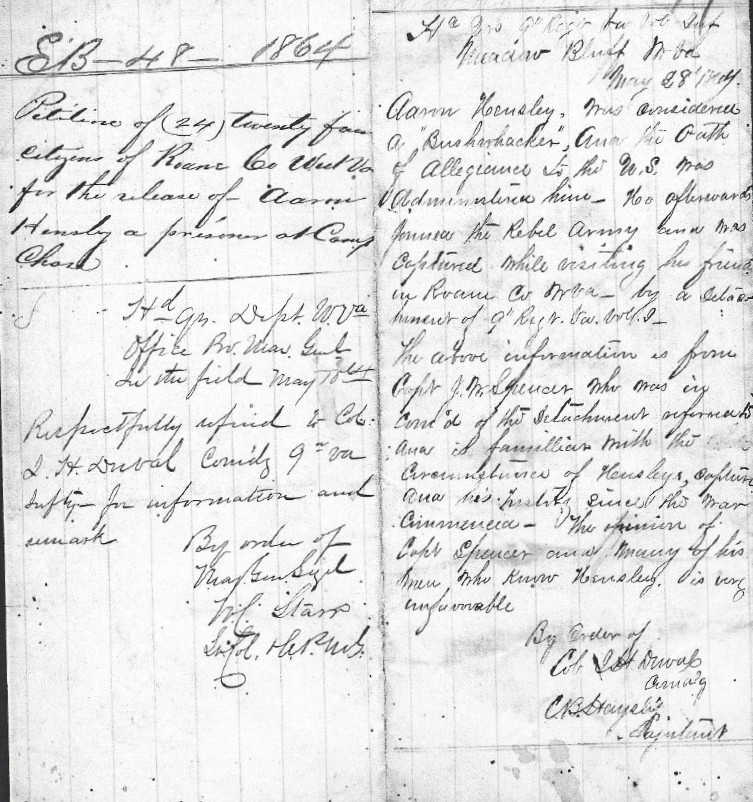 EB - 48 - 1864
Petition of (24) twenty four
citizens of Roane Co West Va
for the release of Aaron
Hensley a prisoner at Camp
Chase
Hd Qrs. Dept. W. Va
Office Pro. Mar. Genl
In the field May 1864
Respectfully refered to Col.
I. H. Duval Comdg 9th Va
Infty - for information and
remark
By order of
Maj Gen Sigel
Wm Starr
Lt Col.
Hd Qrs 9th Regt Va Vol Inft
Meadow Bluff W Va
May 28th 1864.
Aaron Hensley, was considered
a "Bushwhacker", And the Oath
of Allegiance to the U.S. was
Administered him - He afterwards
joined the Rebel Army and was
captured while visiting his friends
in Roane Co W Va - by a detach-
ment of 9th Regt. Va. Vols. I -
The above information is from
Capt J. W. Spencer who was in
Com'd of the Detachment refered to
And is familliar with the
Circumstance of Hensleys, Capture
And his history since the War
Commenced - The opinion of
Capt Spencer and Many of his
Men, who know Hensley. is very
unfavorable
By Order of
Col I H Duval
Comd'g
C B Hayslip
Adjutant